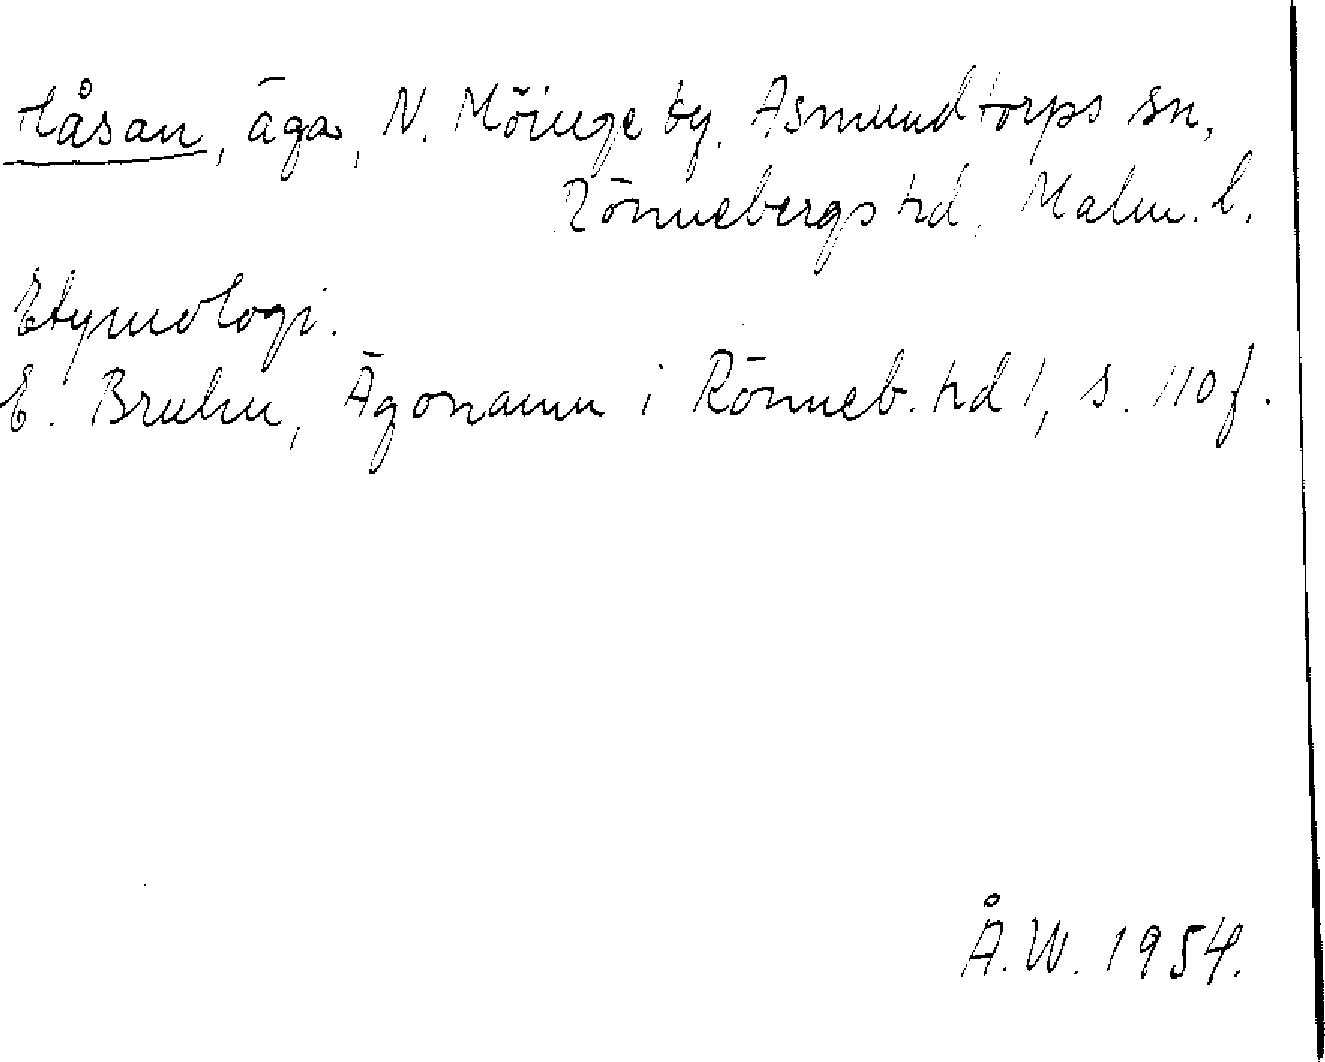 Håsan, äga, N. Möinge by, Asmundtorps sn,
Rönnebergs hd, Malm. l.
Etymologi.
E. Bruhn, Ägonamn i Rönneb. hd 1, s. 110 f.
Å.W. 1954.